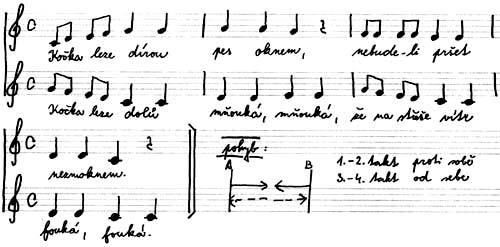 Kočka leze dírou pes oknem, nebude-li pršet
Kočka leze dolů mňouká, mňouká, že na stůše vítr
nezmoknem.
fouká, fouká.
pohyb:
A B
1.-2. takt proti sobě
3.-4. takt od sebe